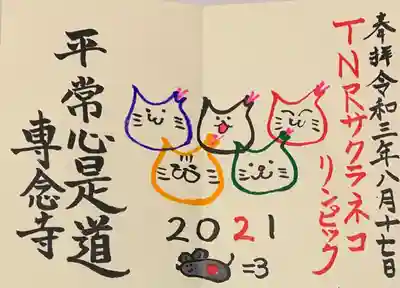 奉拝令和三年八月十七日
TNRサクラネコ
リンピック
2021
=3
平常心是道
専念寺